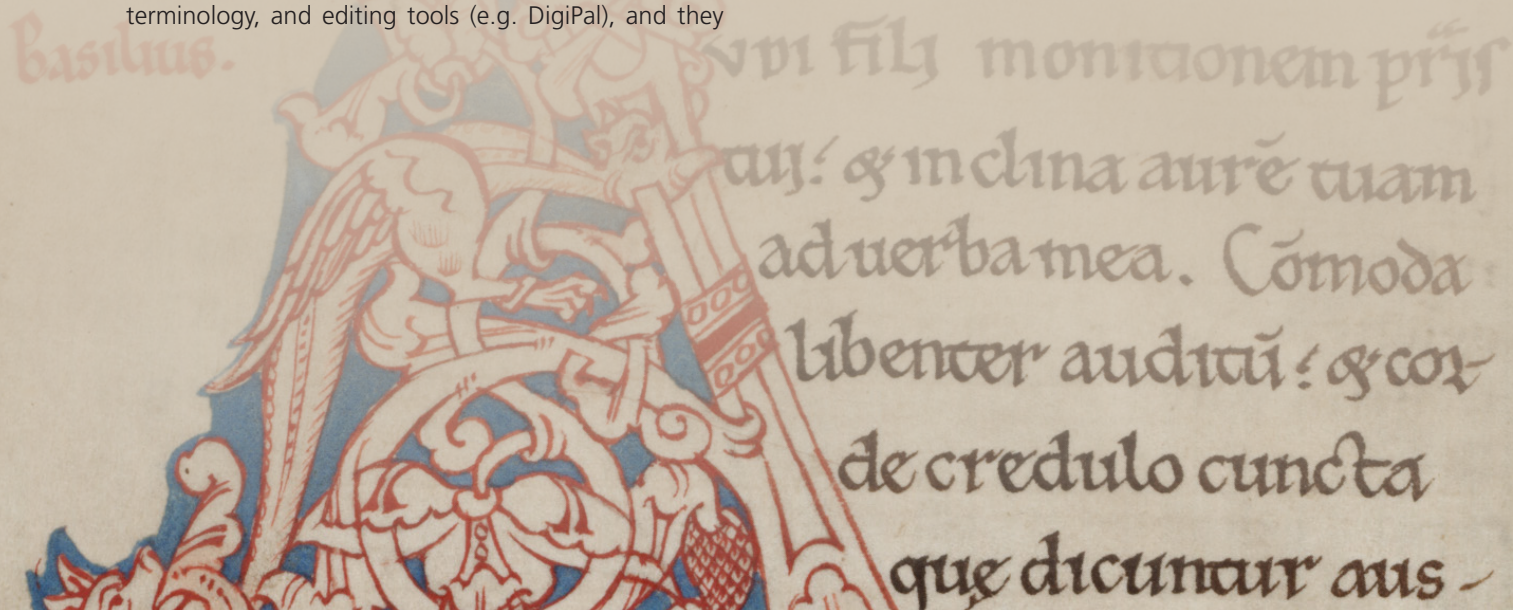 terminology, and editing tools (e.g. DigiPal), and they
Basilius.
vdi fili monitionem pr̃is
tui: & inclina aurē tuam
ad uerba mea. Cōmoda
libenter auditū: & cor-
de credulo cuncta
quę dicuntur aus-